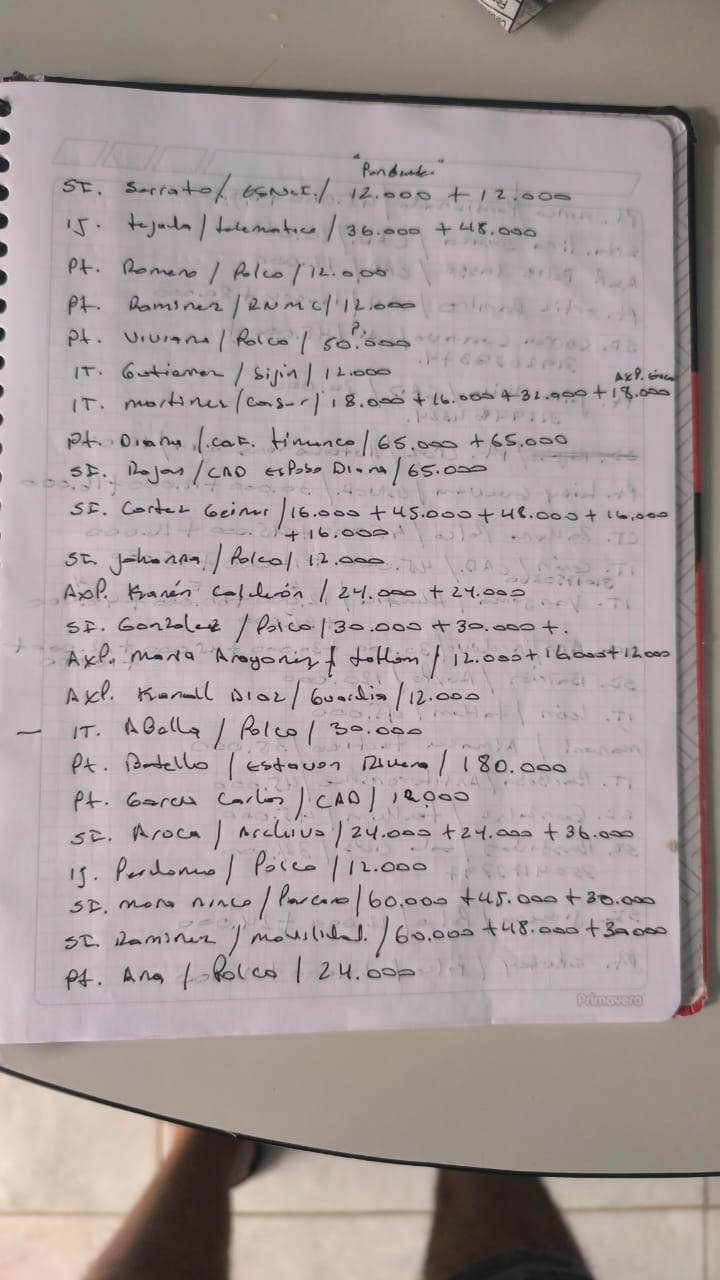 SI. Serrato / ESNCI. / 12.000 + 12.000
IJ. tejada / telematica / 36.000 + 48.000
Pt. Romero / Polco / 12.000
Pt. Ramirez / RNMC / 12.000
Pt. Viviana / Polco / 50.000
P.
IT. Gutierrez / Sijin / 12.000
AxP.
IT. martinez / Casur / 18.000 + 16.000 + 32.000 + 18.000
Pt. Diana / .cat. / 65.000 + 65.000
SI. Rojas / CAD Esposo Diana / 65.000
SI. Cortez Geiner / 16.000 + 45.000 + 48.000 + 16.000
+ 16.000
SI. Johanna / Polco / 12.000
AxP. Calderón / 24.000 + 24.000
SI. Gonzalez / Polco / 30.000 + 30.000 +.
AxP. Maria Aragonez / / 12.000 + 16.000 + 12.000
AxP. Diaz / Guardia / 12.000
— IT. ABella / Polco / 30.000
Pt. Botello / / 180.000
Pt. Garcia Carlos / CAD / 12.000
SI. Aroca / Archivo / 24.000 + 24.000 + 36.000
IJ. Perdomo / Polco / 12.000
SI. mora / / 60.000 + 45.000 + 30.000
SI. Ramirez / movilidad. / 60.000 + 48.000 + 30.000
Pt. Ana / Polco / 24.000
Primavera